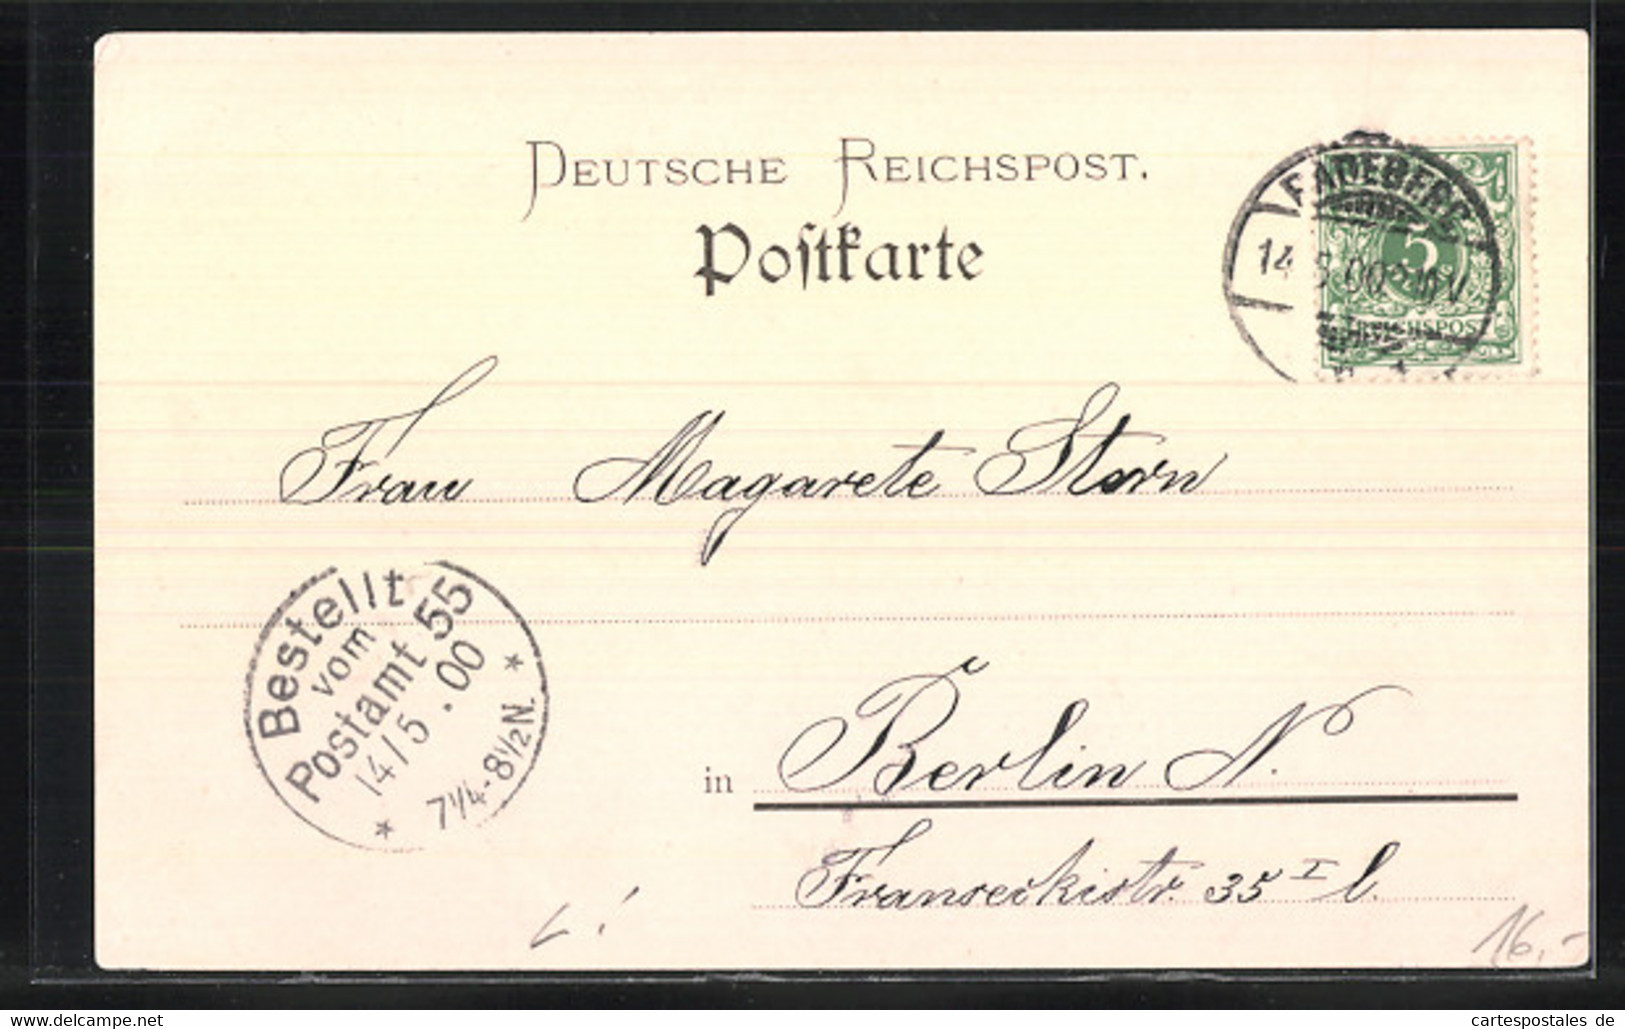 DEUTSCHE REICHSPOST.
Postkarte
14 5.00
5
REICHSPOST
Frau Magarete Stern
Bestellt
vom
Postamt 55
14/5.00
* 7¼-8½N. *
in Berlin N.
Franseckistr. 35 I l.
16.-
www.delcampe.net
cartespostales de